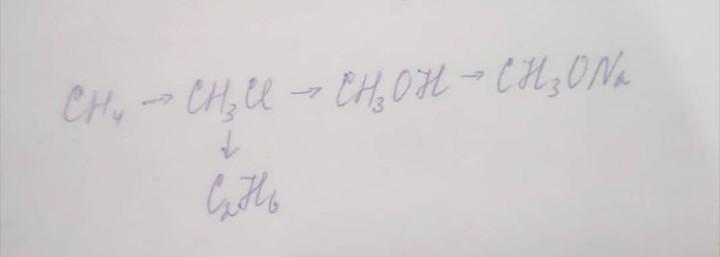 CH₄ → CH₃Cl → CH₃OH → CH₃ONa
↓
C₂H₆